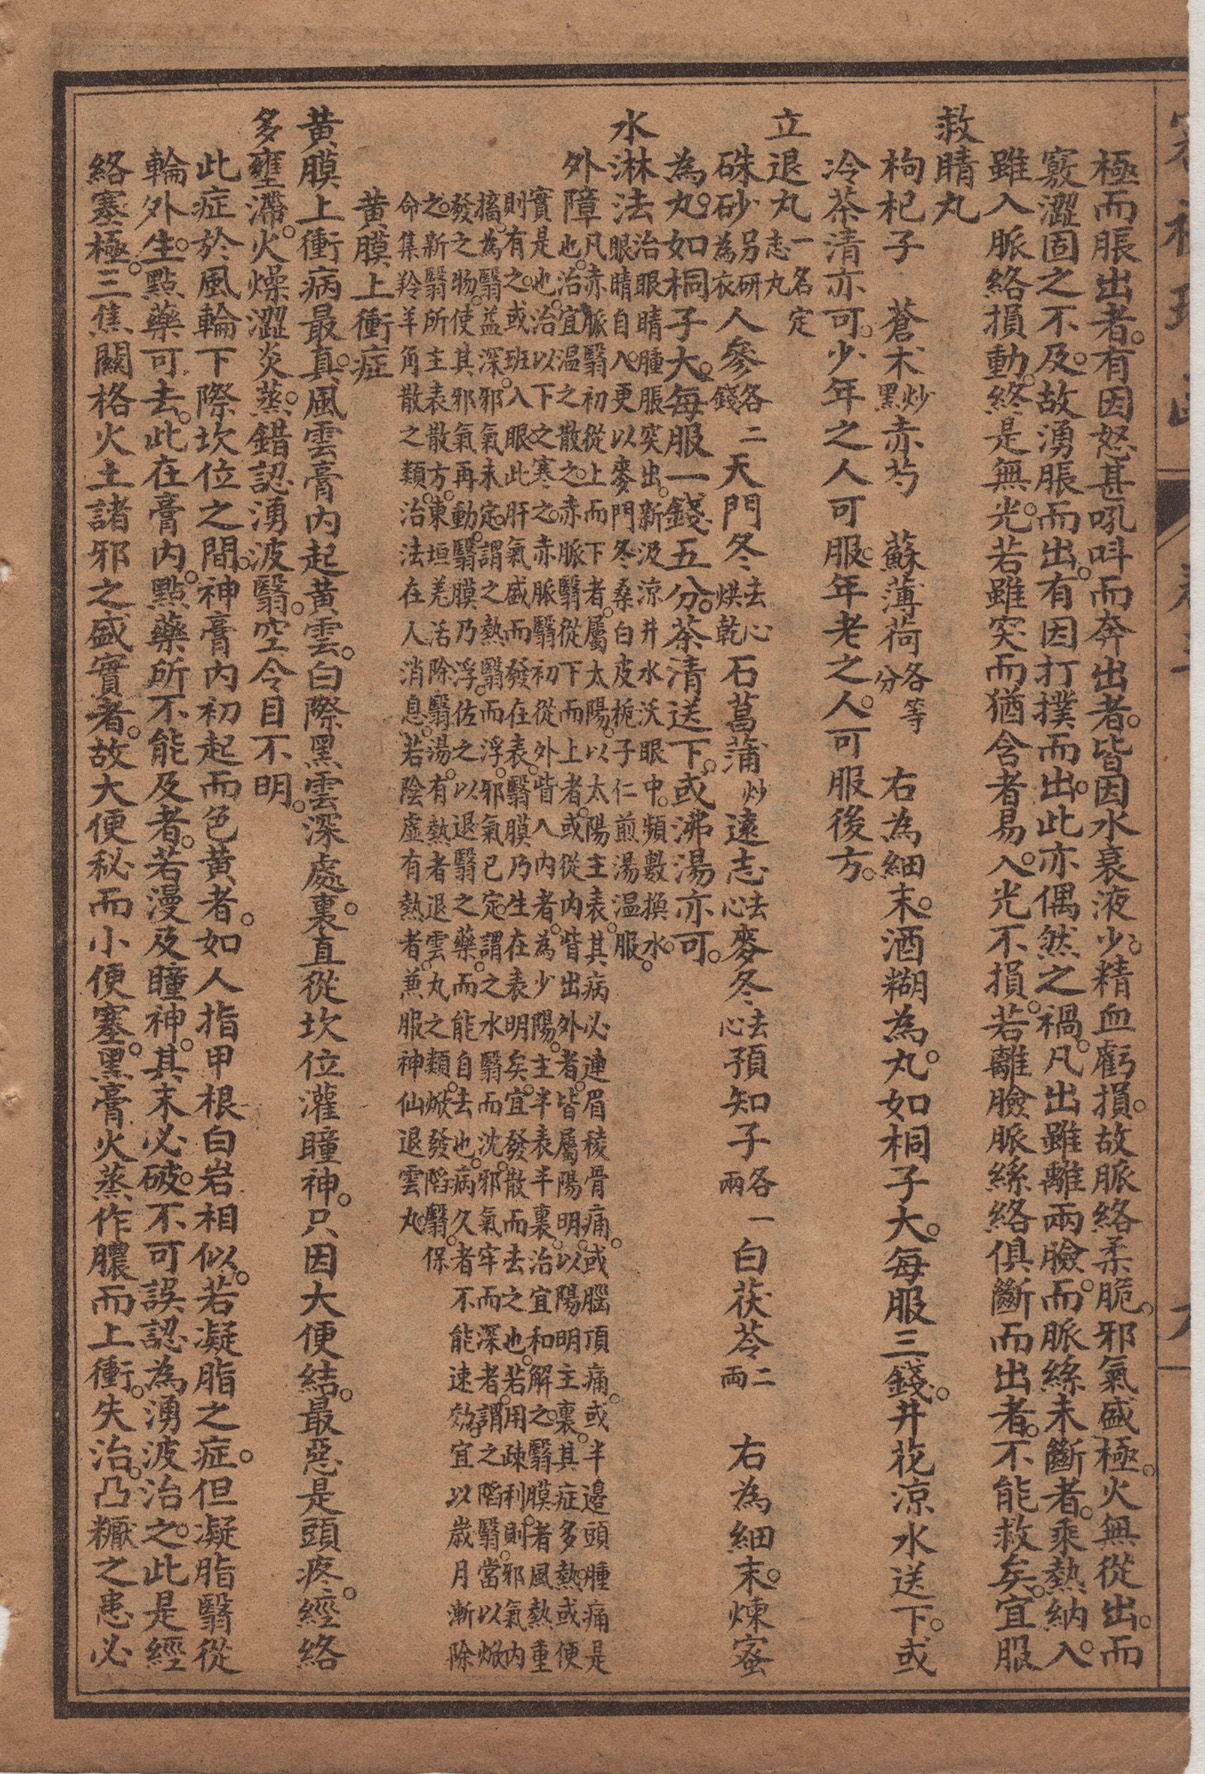 極而脹出者。有因怒甚吼呌而奔出者。皆因水衰液少。精血虧損。故脈絡柔脆。邪氣盛極。火無從出。而
竅澀固之不及。故湧脹而出。有因打撲而出。此亦偶然之禍。凡出雖離兩臉。而脈絲未斷者。乘熱納入。
雖入脈絡損動。終是無光。若雖突而猶含者易入。光不損。若離臉脈絲絡俱斷而出者。不能救矣。宜服
救睛丸
枸杞子 蒼朮炒黑 赤芍 蘇薄荷各等分 右為細末。酒糊為丸。如桐子大。每服三錢。井花涼水送下。或
冷茶清亦可。少年之人可服。年老之人。可服後方。
立退丸一名定志丸
硃砂另研為衣 人參各二錢 天門冬去心烘乾 石菖蒲炒 遠志去心 麥冬去心 預知子各一兩 白茯苓二兩 右為細末。煉蜜
為丸。如桐子大。每服一錢五分。茶清送下。或沸湯亦可。
水淋法治眼睛腫脹突出。新汲涼井水沃眼中。頻數換水。
眼睛自入。更以麥門冬桑白皮梔子仁煎湯溫服。
外障凡赤脈翳初從上而下者。屬太陽。以太陽主表。其病必連眉稜骨痛。或腦頂痛。或半邊頭腫痛是
也。治宜溫之散之。赤脈翳從下而上者。或從內眥出外者。皆屬陽明。以陽明主裏。其症多熱。或便
實是也。治以下之寒之。赤脈翳初從外眥入內者。為少陽。主半表半裏。治宜和解之。翳膜者風熱重
則有之。或班入眼。此肝氣盛而發在表。翳膜乃生在表明矣。宜發散而去之也。若用疎利。則邪氣內
搐。為翳益深。邪氣未定。謂之熱翳而浮。邪氣已定。謂之水翳而沈。邪氣牢而深者。謂之陷翳。當以焮
發之物。使其邪氣再動。翳膜乃浮。佐之以退翳之藥。而能自去也。病久者不能速効。宜以歲月漸除
之。新翳所主表散方。東垣羌活除翳湯。有熱者退雲丸之類。焮發陷翳。保
命集羚羊角散之類。治法在人消息。若陰虛有熱者。兼服神仙退雲丸。
黃膜上衝症
黃膜上衝病最真。風雲膏內起黃雲。白際黑雲深處裏。直從坎位灌瞳神。只因大便結。最惡是頭疼。經絡
多壅滯。火燥澀炎蒸。錯認湧波翳。空令目不明。
此症於風輪下際坎位之間。神膏內初起而色黃者。如人指甲根白岩相似。若凝脂之症。但凝脂翳從
輪外生。點藥可去。此在膏內。點藥所不能及者。若漫及瞳神。其末必破。不可誤認為湧波治之。此是經
絡塞極。三焦關格火土諸邪之盛實者。故大便秘而小便塞。黑膏火蒸作膿而上衝。失治。凸糲之患必